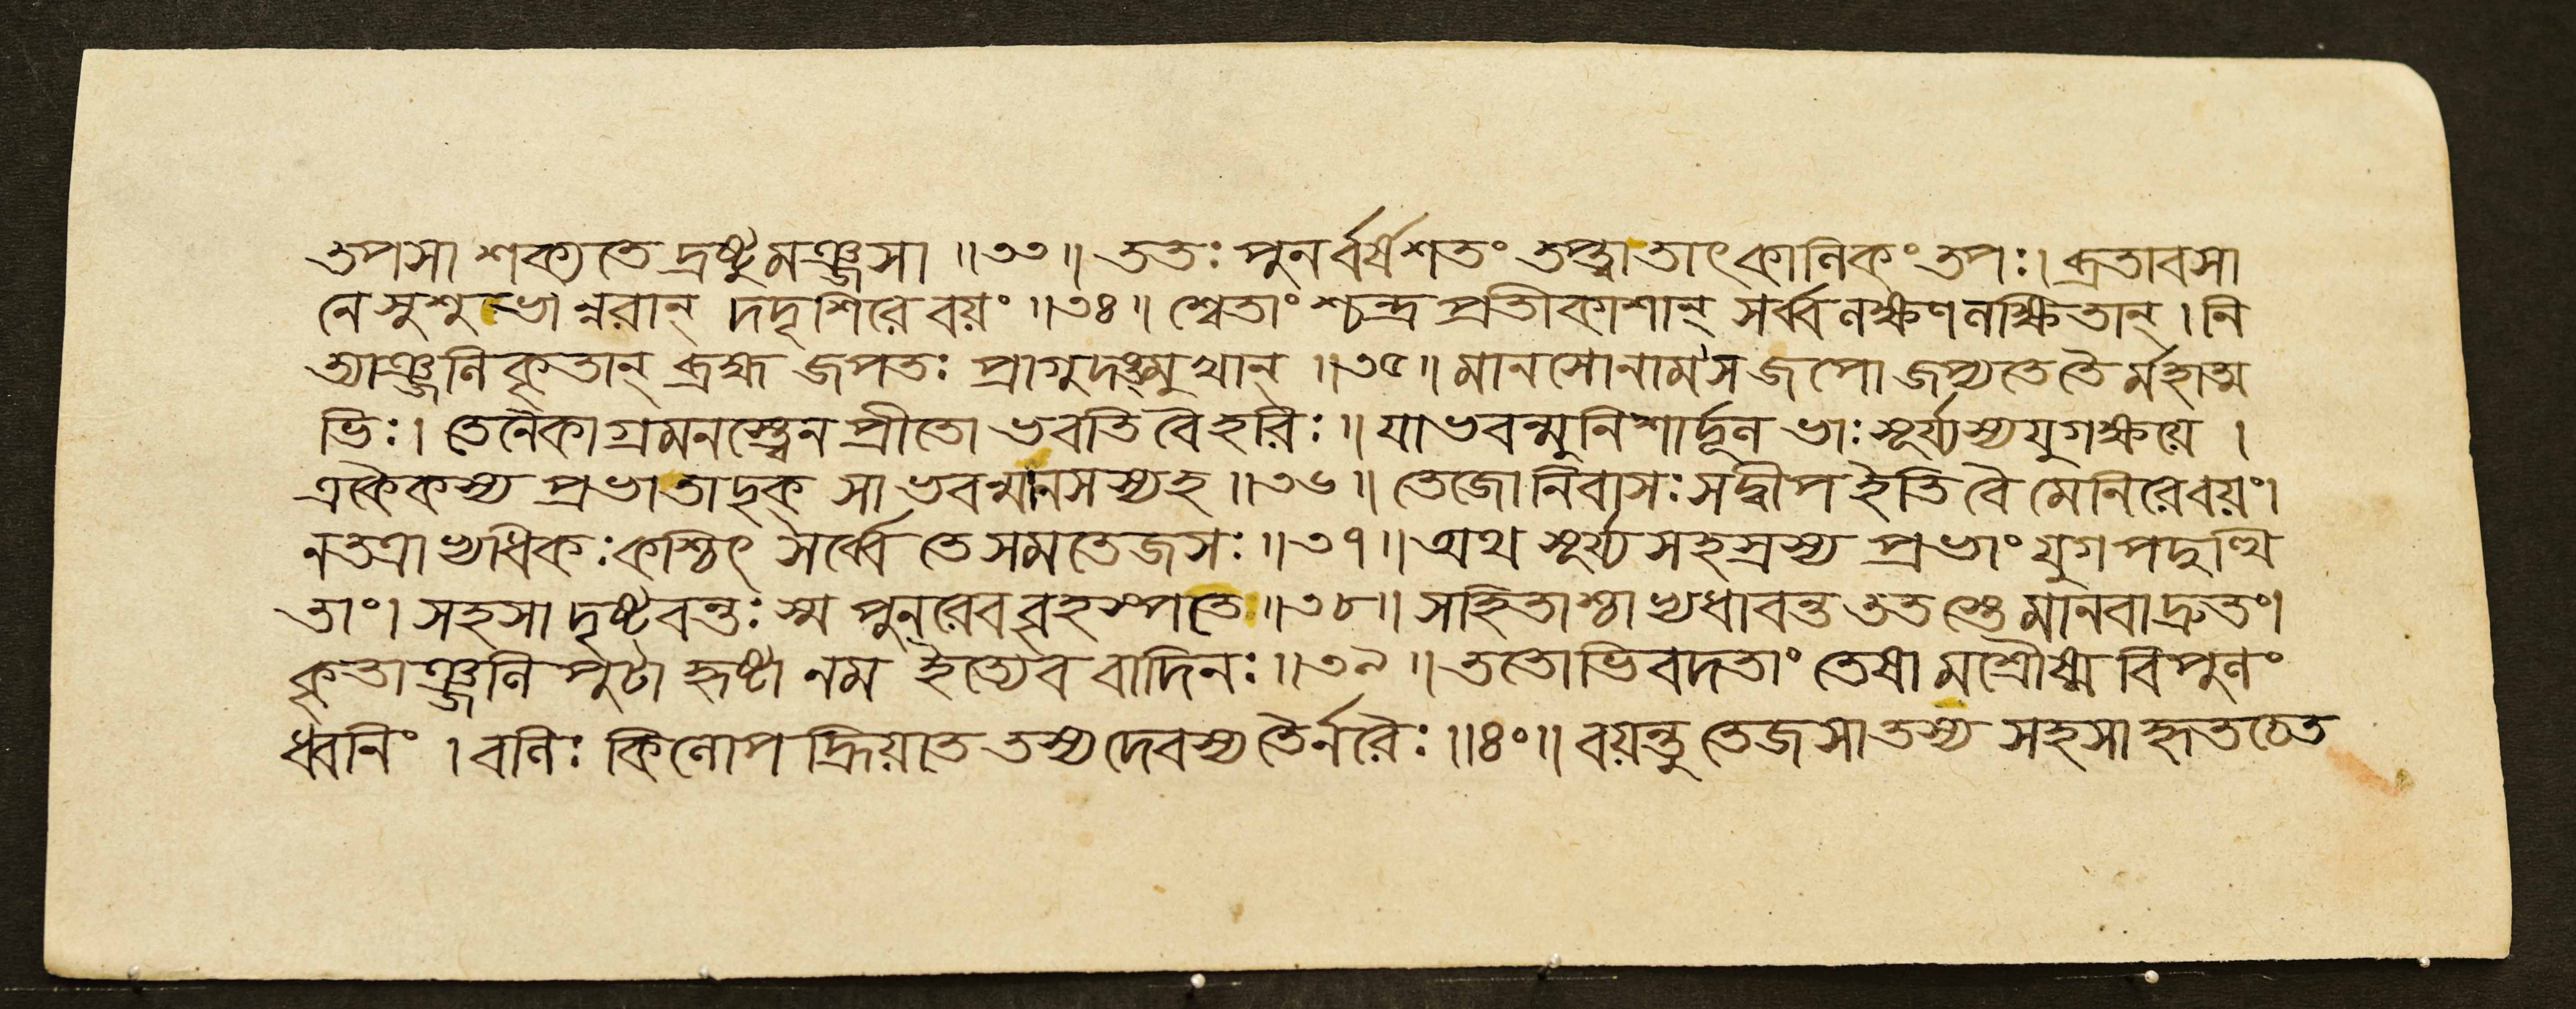 তপসা শক্যতে দ্রষ্টুমঞ্জসা ॥৩৩॥ ততঃ পুনর্ব্বর্ষশতং তপ্ত্বা তাৎকালিকং তপঃ। ব্রতাবসা
নে সুশুভান্নরান্ দদৃশিরে বয়ং ॥৩৪॥ শ্বেতাংশ্চন্দ্রপ্রতীকাশান্ সর্ব্বলক্ষণলক্ষিতান্। নি
ত্যাঞ্জলিকৃতান্ ব্রহ্ম জপতঃ প্রাগুদঙ্মুখান্ ॥৩৫॥ মানসোনাম স জপো জপ্যতে তৈর্মহাত্ম
ভিঃ। তেনৈকাগ্রমনস্ত্বেন প্রীতো ভবতি বৈ হরিঃ॥ যাভবন্মুনিশার্দূল ভাঃ সূর্য্যস্য যুগক্ষয়ে।
একৈকস্য প্রভা তাদৃক্ সাভবন্মানসস্য হ ॥৩৬॥ তেজোনিবাসঃ সদ্বীপ ইতি বৈ মেনিরে বয়ং।
ন তত্রাভ্যধিকঃ কশ্চিৎ সর্ব্বে তে সমতেজসঃ ॥৩৭॥ অথ সূর্য্যসহস্রস্য প্রভাং যুগপদুত্থি
তাং। সহসা দৃষ্টবন্তঃ স্ম পুনরেব বৃহস্পতে ॥৩৮॥ সহিতাশ্চাভ্যধাবন্ত ততস্তে মানবা দ্রুতং।
কৃতাঞ্জলিপুটা হৃষ্টা নম ইত্যেব বাদিনঃ ॥৩৯॥ ততোভিবদতাং তেষামশ্রৌষ্ম বিপুলং
ধ্বনিং। বলিঃ কিলোপহ্রিয়তে তস্য দেবস্য তৈর্নরৈঃ ॥৪০॥ বয়ন্তু তেজসা তস্য সহসা হৃতচেত